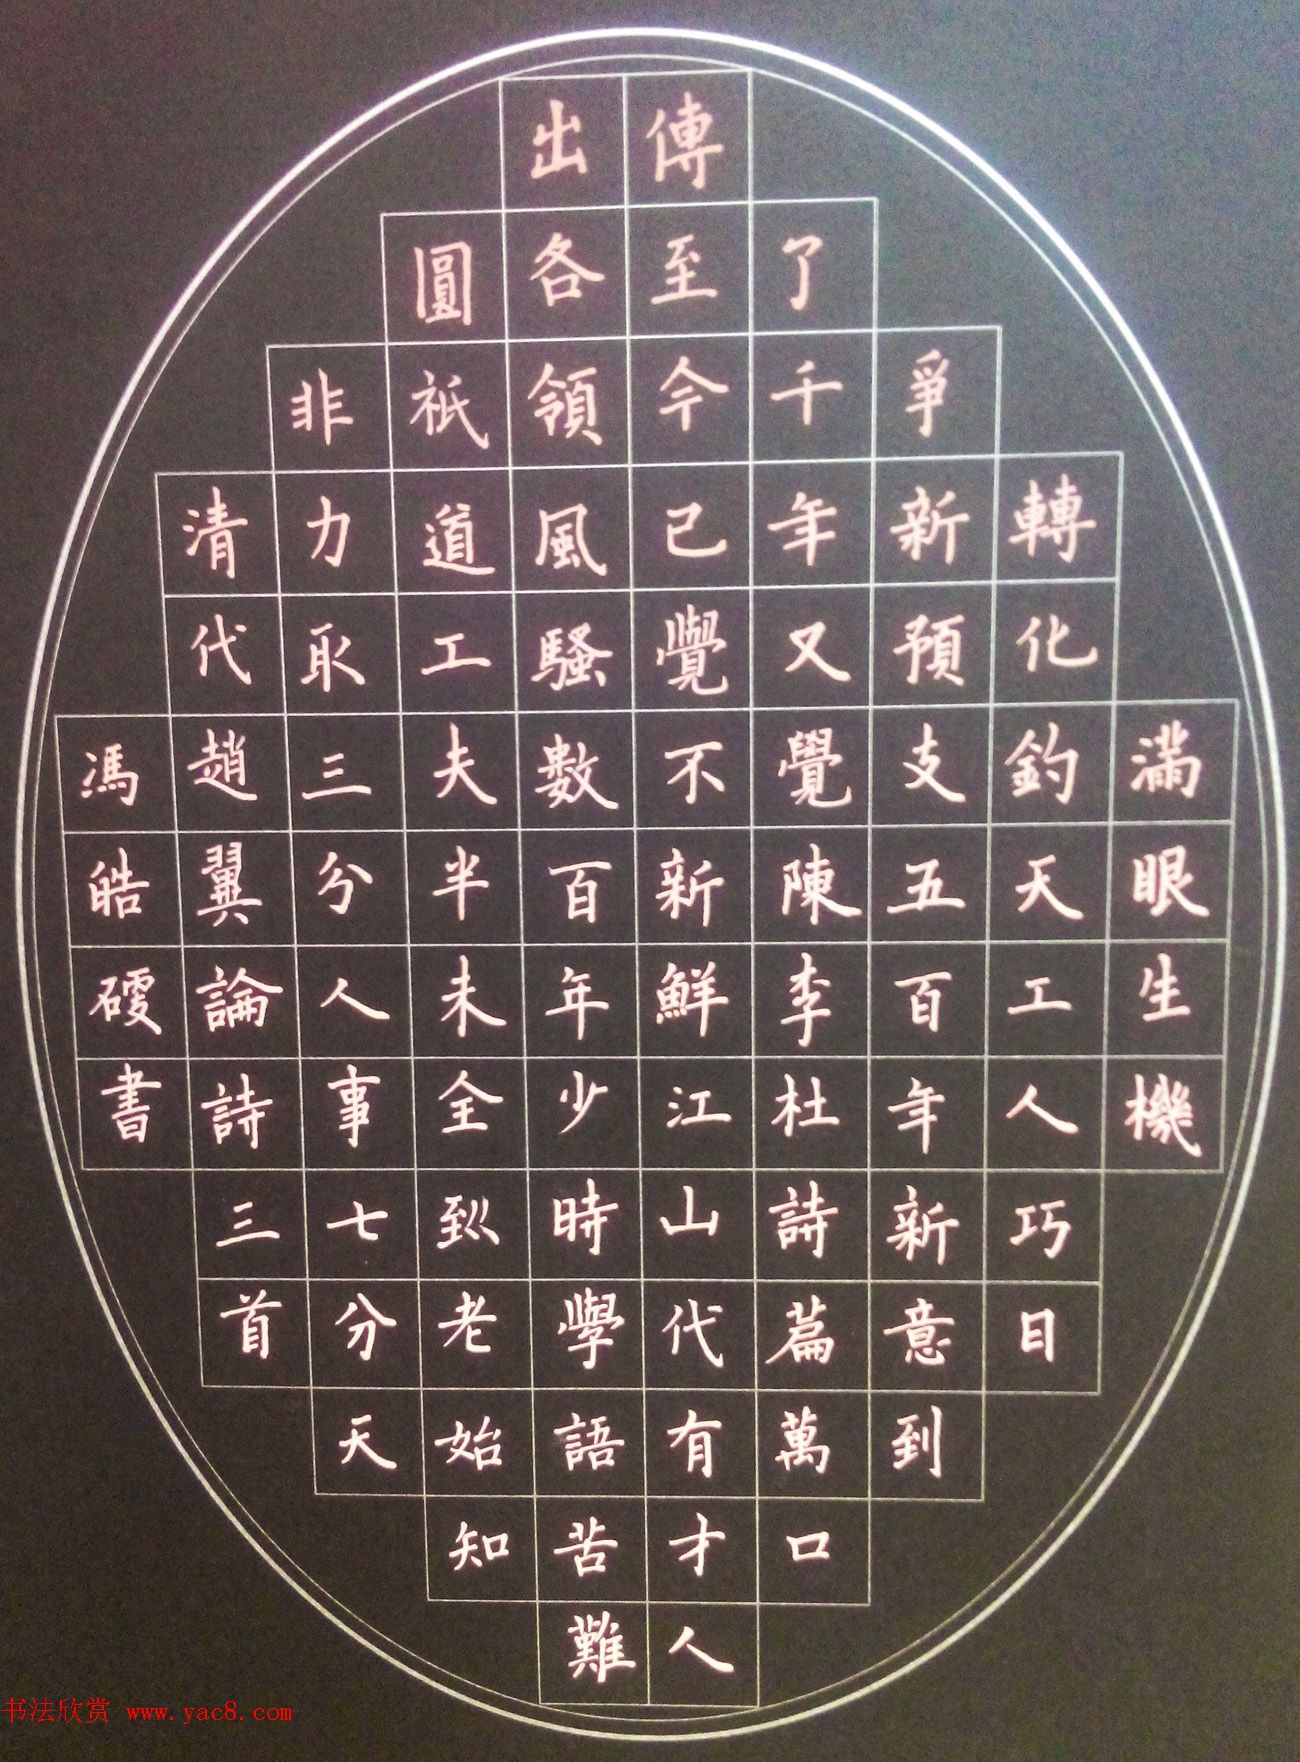 滿眼生機
轉化鈞天工人巧日
爭新預支五百年新意到
了千年又覺陳李杜詩篇萬口
傳至今已覺不新鮮江山代有才人
出各領風騷數百年少時學語苦難
圓祇道工夫半未全到老始知
非力取三分人事七分天
清代趙翼論詩三首
馮皓書
书法欣赏 www.yac8.com